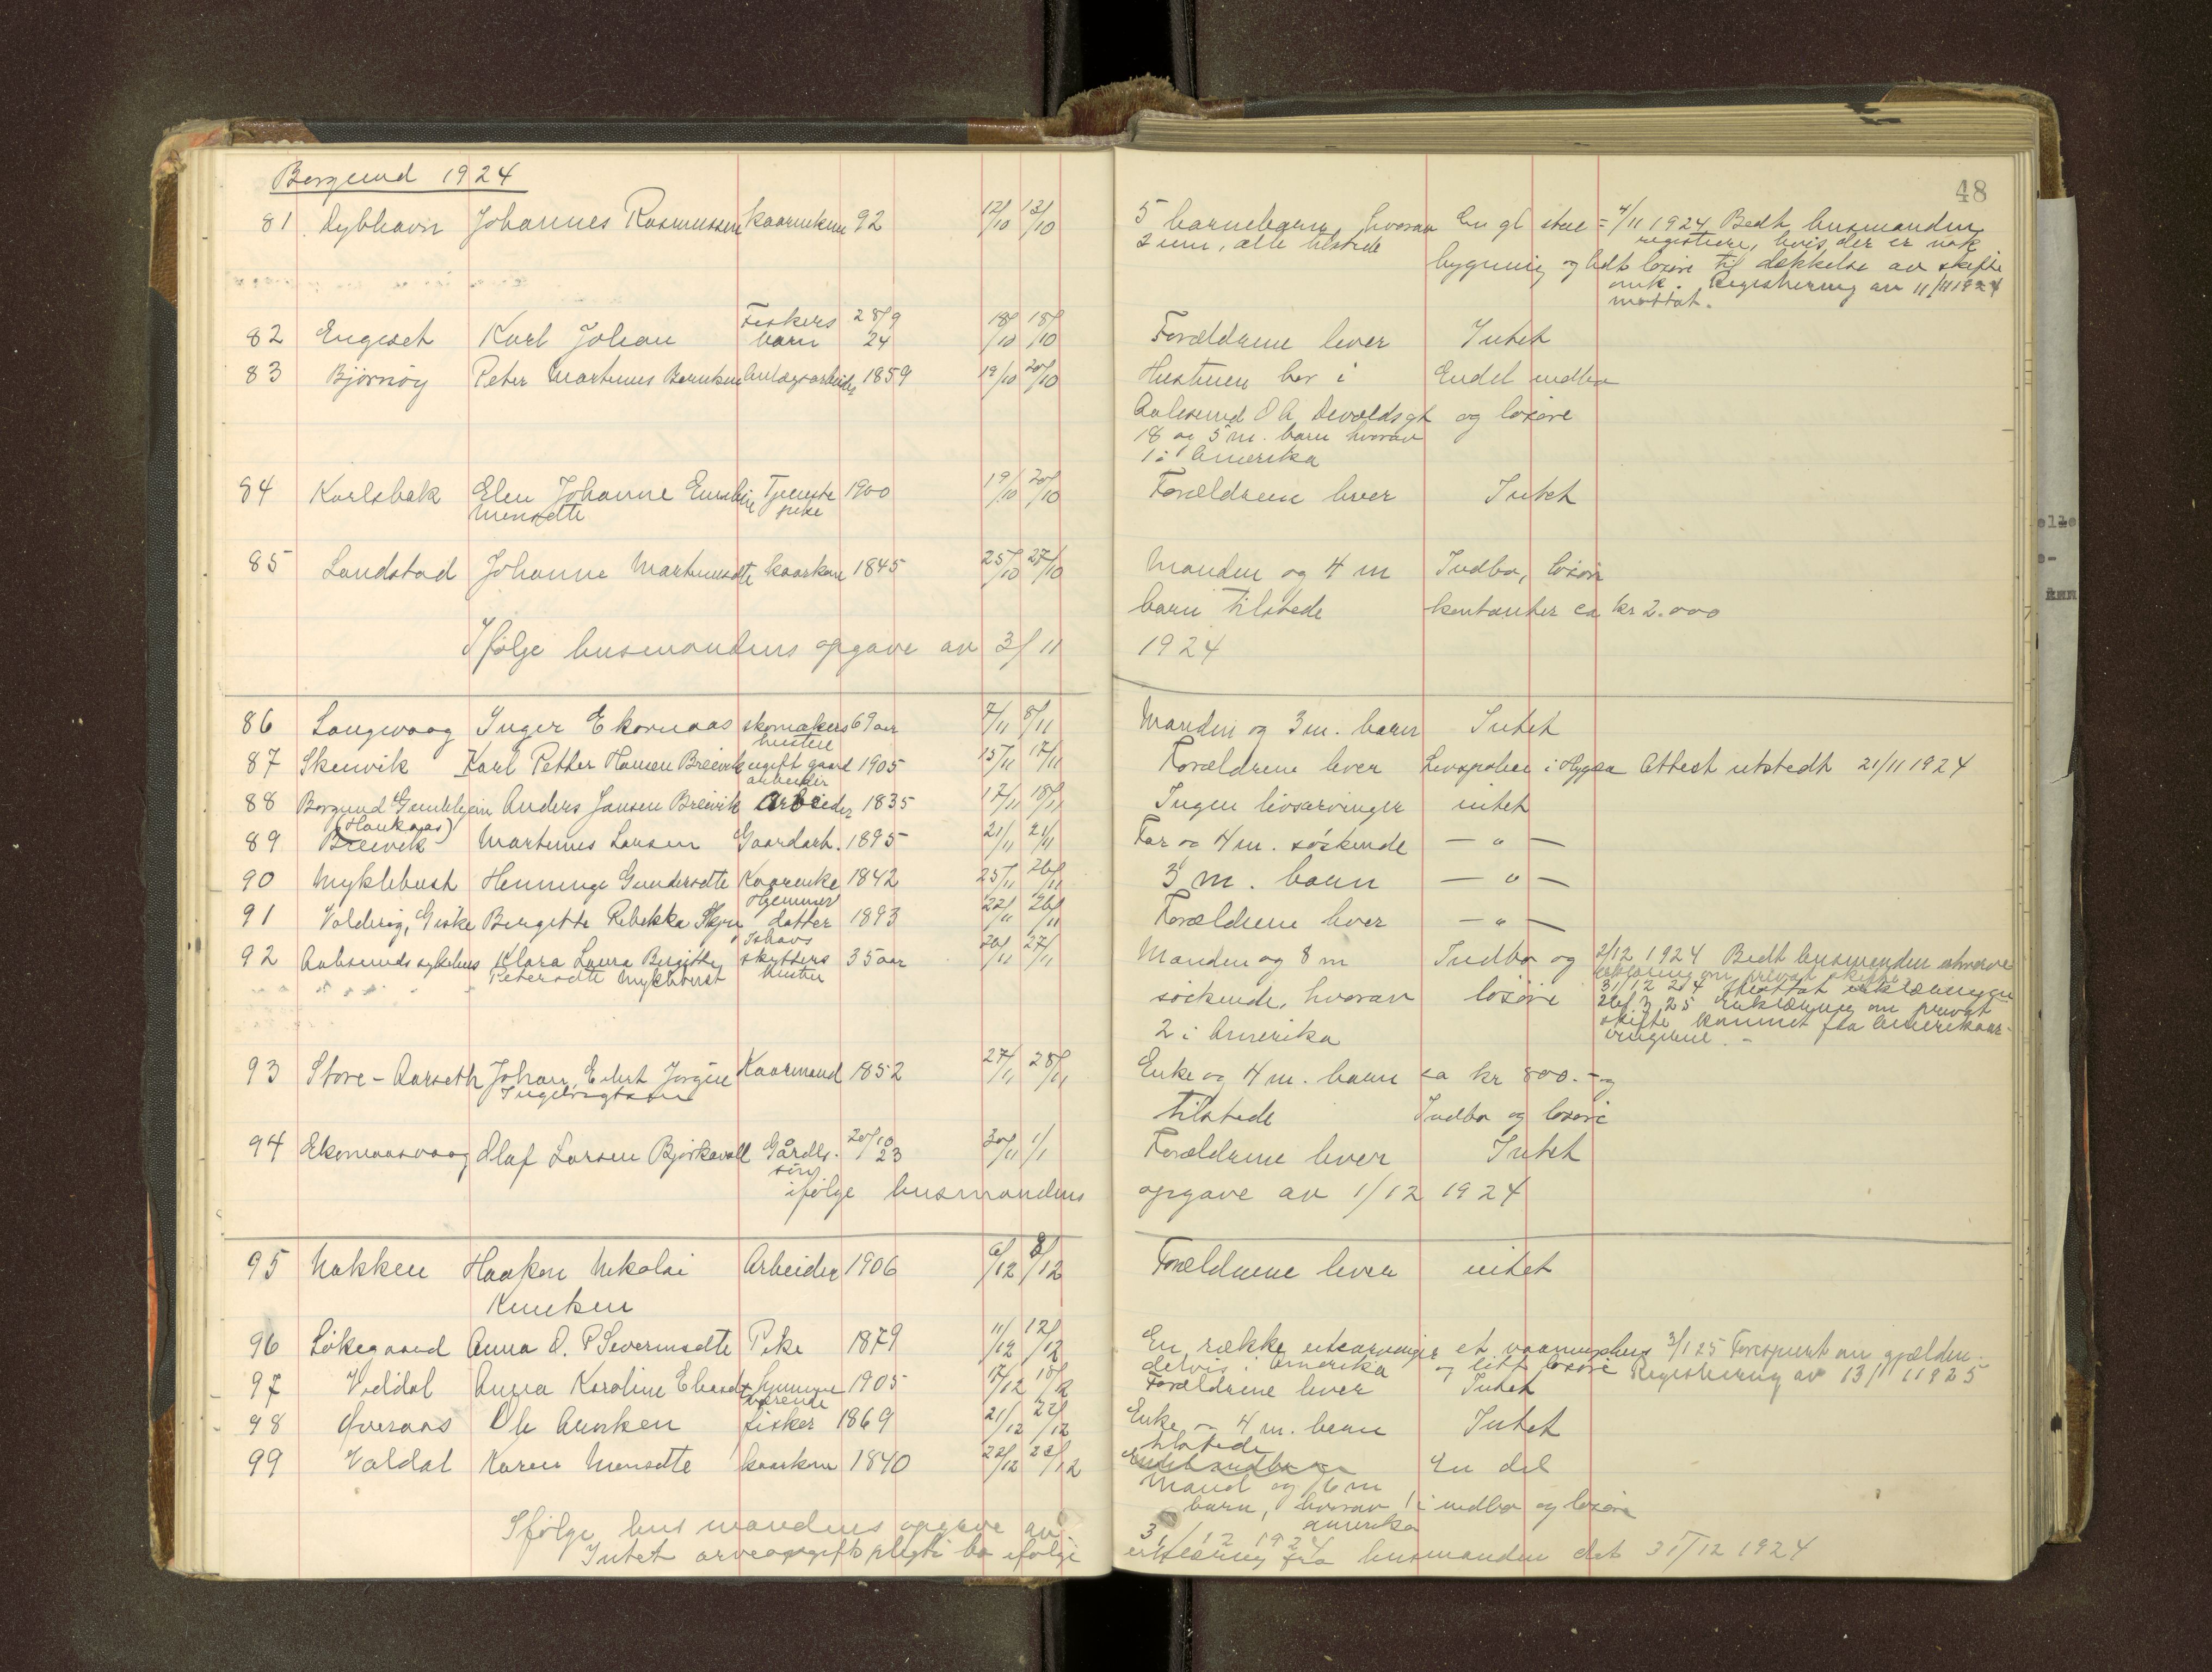 Borgund 1924
48
81 Dybhavn Johannes Rasmussen kaarenkem 92 12/10 13/10 5 barnebarn, hvorav En gl stue = 4/11 1924 Bedt husmanden
2 um, alle tilstede registrere, hvis der er nok
bygning og lidt losøre til dekkelse av skifte
omk. Registrering av 11/11 1924
mottat.
Fiskers 28/9
82 Engeset Karl Johan barn 24 18/10 18/10 Forældrene lever Intet
83 Bjørnøy Peter Martinus Berntsen Anlægsarbeider 1859 19/10 20/10 Hustruen bor i Endel indbo
Aalesund O A Devoldsgt og losøre
18 og 5 m. barn hvorav
1 i Amerika
84 Karlsbak Elen Johanne Emeline Tjeneste 1900 19/10 20/10 Forældrene lever Intet
Monsdtr pike
85 Landstad Johanne Martinusdtr kaarkone 1845 25/10 27/10 Manden og 4 m Indbo, losøre
barn tilstede kontanter ca kr 2.000
Ifølge husmandens opgave av 3/11 1924
86 Langevaag Inger Ekornaas skomakers 69 aar 7/11 8/11 Manden og 3 m. barn Intet
hustru
87 Skeivik Karl Petter Hansen Breivik ugift gaard 1905 15/11 17/11 Forældrene lever Livspolice i Hygea Attest utstedt 21/11 1924
arbeider
88 Borgund Gamlehjem Anders Jansen Breivik Arbeider 1835 17/11 18/11 Ingen livsarvinger intet
(Haukaas)
89 Breivik Martinus Larsen Gaardarb. 1895 21/11 21/11 Far og 4 m. søskende — " —
90 Myklebust Henninge Gundersdtr Kaarenke 1842 25/11 26/11 3 m. barn — " —
Hjemmev
91 Valderøy, Giske Bergitte Rebekka datter 1893 22/11 26/11 Forældrene lever — " —
Ishavs
92 Aalesunds sykehus Klara Laura Birgitte skytters 35 aar 20/11 27/11 Manden og 8 m Indbo og 2/12 1924 Bedt husmanden
Petersdtr Myklebust hustru erklæring om privat skifte
søskende, hvorav losøre 31/12 24 Mottat erklæringen
26/3 25 erklæring om privat
2 i Amerika skifte kommet fra Amerikaar-
vingerne. -
93 Store-Aarseth Johan Edvt Jørgen Kaarmand 1852 27/11 28/11 Enke og 4 m. barn ca kr 800.- og
Ingebrigtsen tilstede Indbo og losøre
94 Ekornaasvaag Olaf Larsen Bjørkavoll Gårdbr. 20/10 23 30/11 1/1 Forældrene lever Intet
søn
ifølge husmandens opgave av 1/12 1924
95 Nakken Haakon Nikolai Arbeider 1906 6/12 8/12 Forældrene lever intet
Knutsen
96 Løkegaard Anna O. P Severinsdtr Pike 1879 11/12 12/12 En række utearvinger et vaaningshus 3/1 25 Forespurt om gjælden.
delvis i Amerika og litt losøre Registrering av 13/1 1925
97 Veddal Anna Karoline hjemme 1905 17/12 18/12 Forældrene lever Intet
værende
98 Overaas Ole fisker 1869 21/12 22/12 Enke – 4 m. barn Intet
tilstede
99 Valdal Karen Monsdtr kaarkone 1840 22/12 23/12 En del
Mand og 6 m
barn, hvorav 1 i indbo og losøre
amerika
Ifølge husmandens opgave av 31/12 1924
Intet arveavgiftspligti bo ifølge erklæring fra husmanden det 31/12 1924
elle
e-